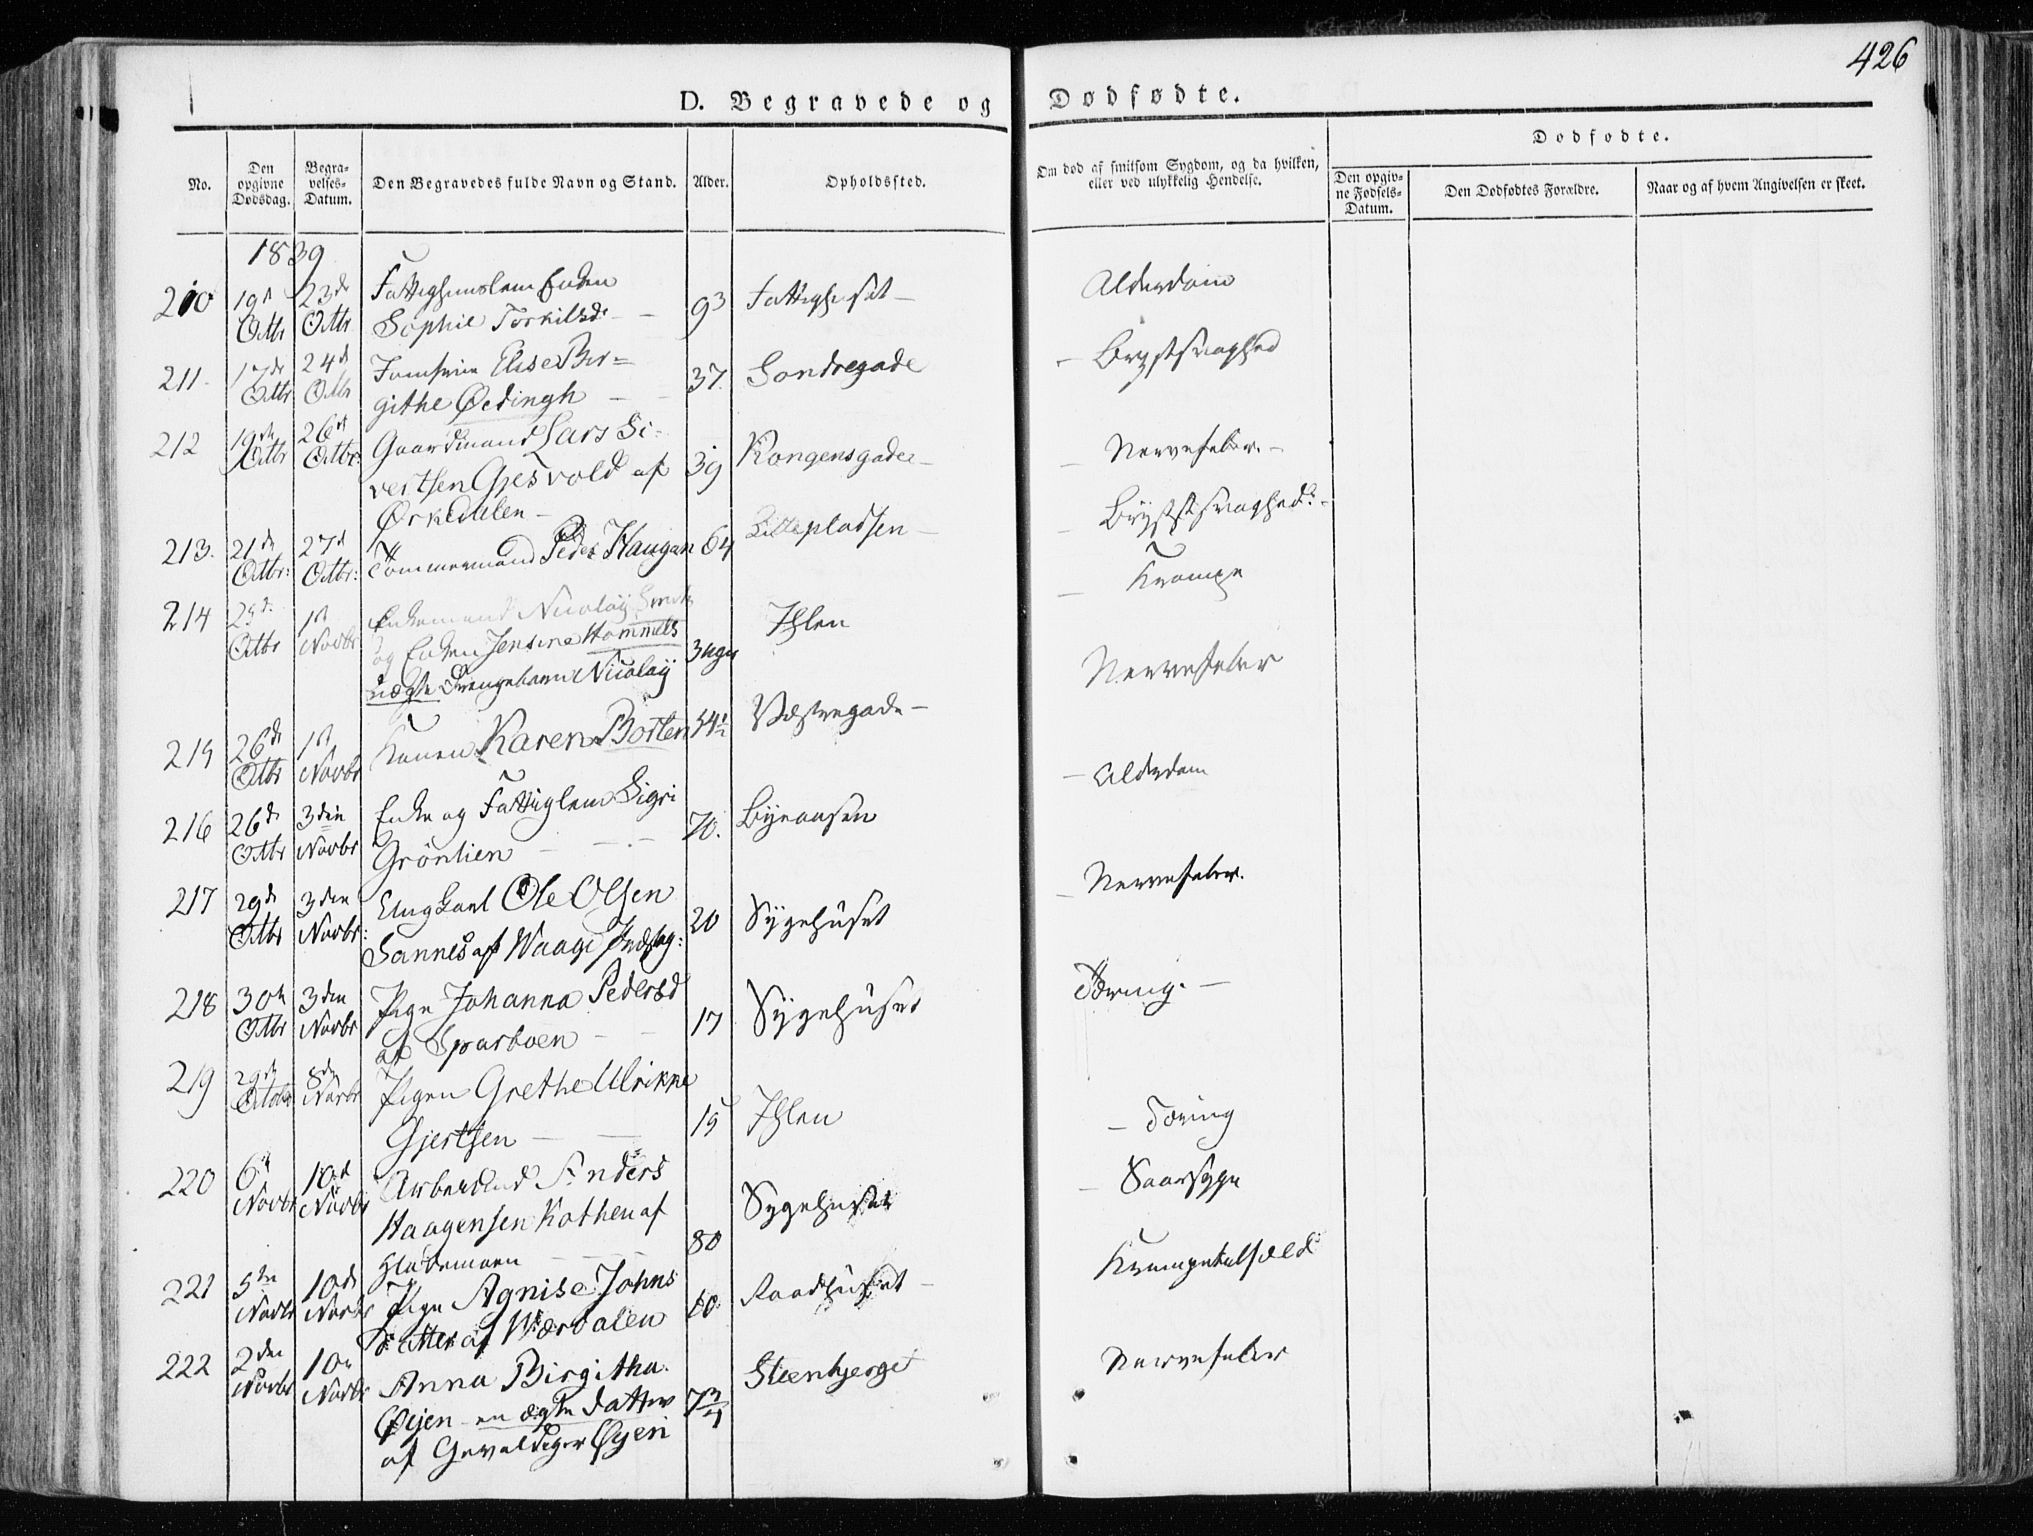 426
D. Begravede og Dødfødte.
No.
Den opgivne Dødsdag.
Begravelses-Datum.
Den Begravedes fulde Navn og Stand.
Alder.
Opholdssted.
Om død af smitsom Sygdom, og da hvilken, eller ved ulykkelig Hendelse.
Dødfødte.
Den opgivne Fødsels-Datum.
Den Dødfødtes Forældre.
Naar og af hvem Angivelsen er skeet.
1839
210 19d Octbr 23d Octbr Fattighuuslem Enken
Sophie Torkilsdr 93 Fattighuset Alderdom
211 17de Octbr 24d Octbr Jomfrue Elise Bir=
githe Øedingh 37. Søndregade Brystsvaghed
212 19de Octbr 26d Octbr: Gaardmand Lars Si-
vertsen Gjesvold af
Ørkedalen 39 Kongensgade Nervefeber.
213. 21de Octbr: 27d Octbr: Tømmermand Peder Haugan 64 Lillepladsen Brystsvaghed
214 25d Octbr 1st Novbr Enkemand Nicolay
og Enken Jensine Hommels
uægte Drengebarn Nicolay 3 uger Ihlen Krampe
215 26d Octbr 1st Novbr Konen Karen Borten 54½ Vestregade Nervefeber
216 26d Octbr 3den Novbr Enke og Fattiglem Sigri
Grönlien 70. Byneasen Alderdom
217 29d Octbr 3den Novbr: Ungkarl Ole Olsen
Sannes af Waage 20 Sygehuset Nervefeber.
218 30te Octbr 3den Novbr Pige Johanna Pedersd
af Sparboen 17 Sygehuset Tæring.
219 29d Octobr 8de Novbr Pigen Grethe Ulrikke
Gjertsen 15 Ihlen Tæring
220 6te Novbr 10d Novbr Arbeidsmd Anders
Haagensen Kothen af
Hedemarken 80 Sygehuset Saarsyge
221 5te Novbr 10de Novbr Pige Agnise Johns
datter af Værdalen 60. Raadhuset Krampetilfæld
222 2den Novbr 10de Novbr Anna Birgitha
Øyen en ægte datter
af Gevaldiger Øyen 7¾ Steenbjerget Nervefeber